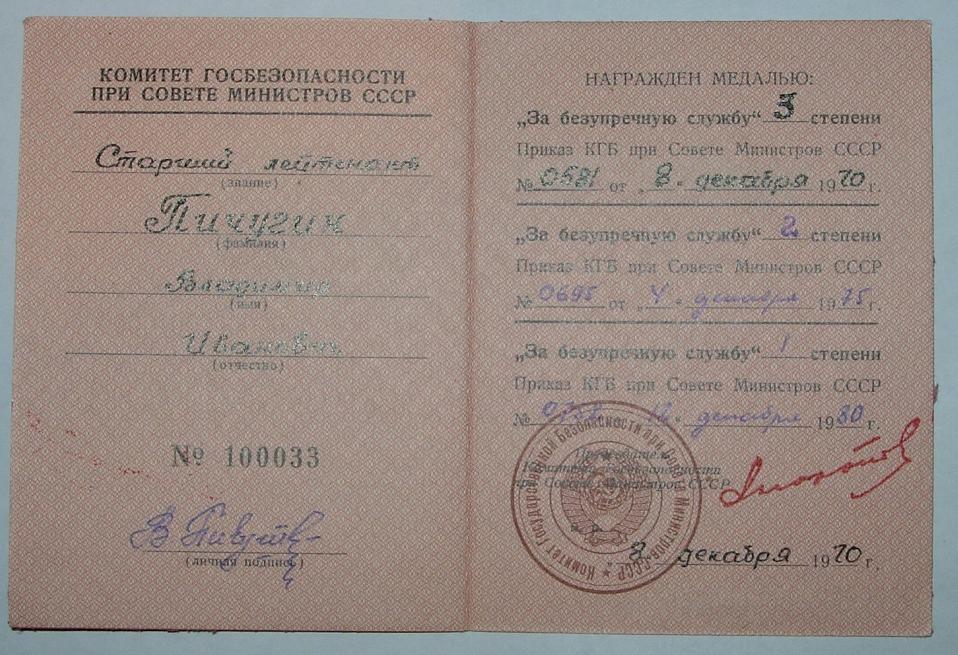 КОМИТЕТ ГОСБЕЗОПАСНОСТИ
ПРИ СОВЕТЕ МИНИСТРОВ СССР
Старший лейтенант
(звание)
Пичугин
(фамилия)
Владимир
(имя)
Иванович
(отчество)
№ 100033
(личная подпись)
НАГРАЖДЕН МЕДАЛЬЮ:
„За безупречную службу“ 3 степени
Приказ КГБ при Совете Министров СССР
№ 0581 от „8“ декабря 1970 г.
„За безупречную службу“ 2 степени
Приказ КГБ при Совете Министров СССР
№ 0695 от „4“ декабря 1975 г.
„За безупречную службу“ 1 степени
Приказ КГБ при Совете Министров СССР
№ декабря 1980 г.
Председатель
Комитета госбезопасности
при Совете Министров СССР
Комитет Государственной Безопасности при Совете Министров СССР
8 декабря 1970 г.